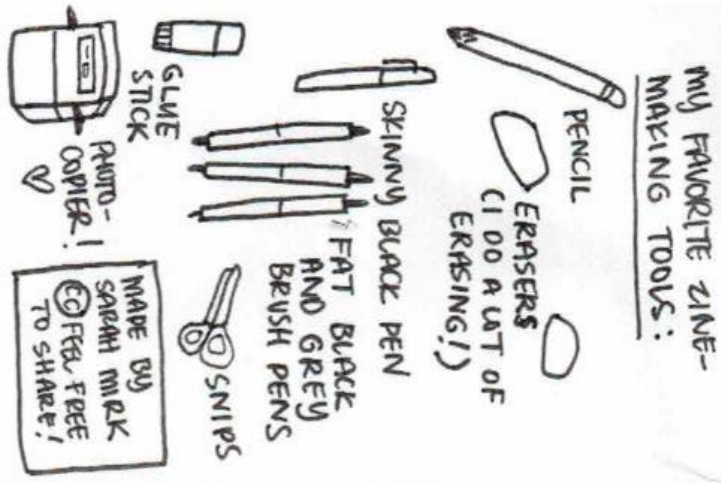 MY FAVORITE ZINE-
MAKING TOOLS:
PENCIL
ERASERS
(I DO A LOT OF
ERASING!)
SKINNY BLACK PEN
FAT BLACK
AND GREY
BRUSH PENS
GLUE
STICK
SNIPS
PHOTO-
COPIER!
MADE BY
SARAH MIRK
CC FEEL FREE
TO SHARE!